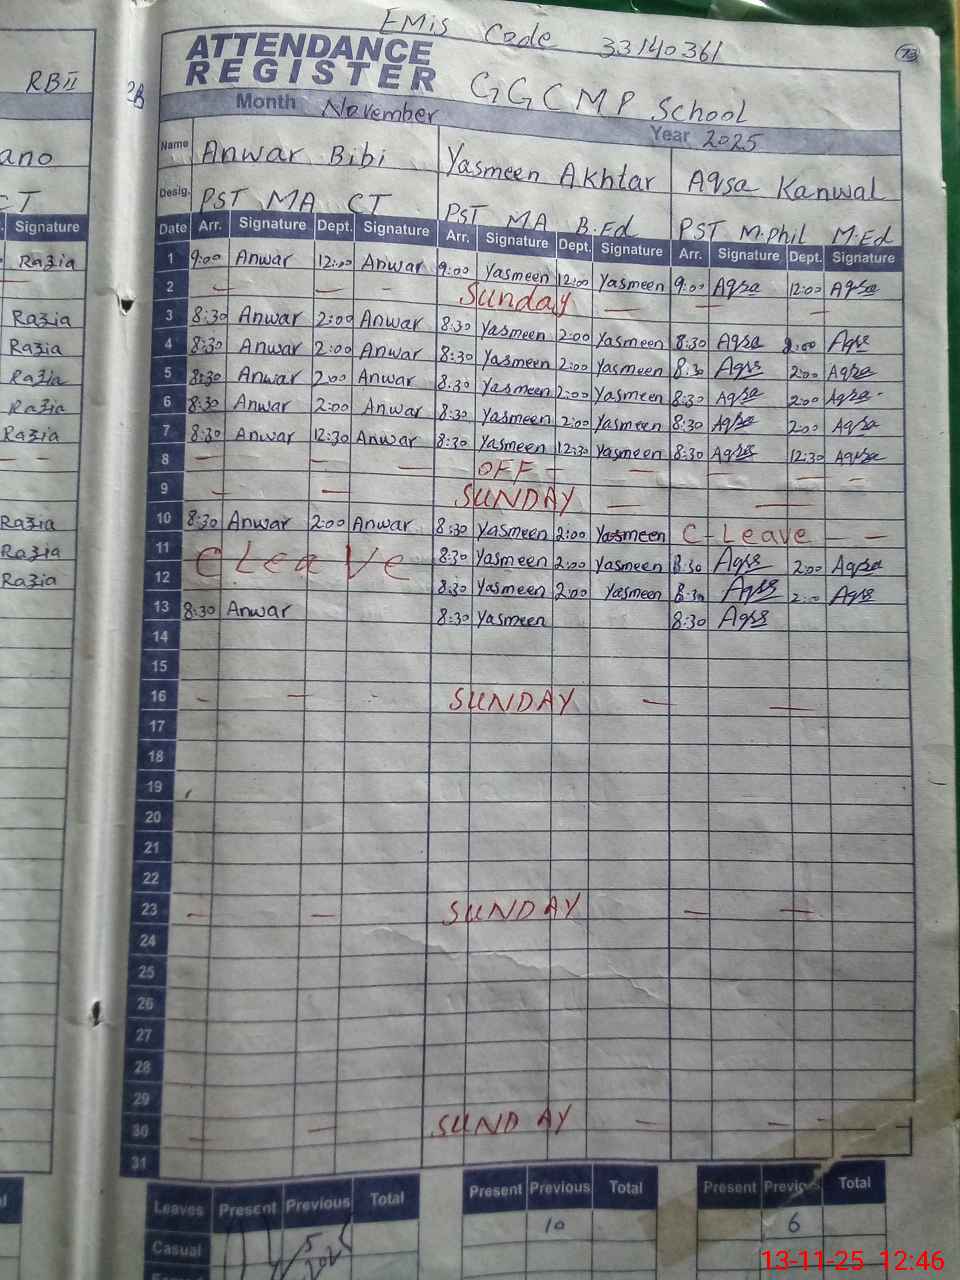 EMis Code 33140361
73
ATTENDANCE
REGISTER
GGCMP School
RBII
Month November
Year 2025
Name Anwar Bibi Yasmeen Akhtar Aqsa Kanwal
Desig. PST MA CT PST MA B.Ed PST M.Phil M.Ed
ano
CT
Signature
Date Arr. Signature Dept. Signature Arr. Signature Dept. Signature Arr. Signature Dept. Signature
Razia
1 9:00 Anwar 12:00 Anwar 9:00 Yasmeen 12:00 Yasmeen 9:00 Aqsa 12:00 Aqsa
2 — — — Sunday — — —
Razia
3 8:30 Anwar 2:00 Anwar 8:30 Yasmeen 2:00 Yasmeen 8:30 Aqsa 2:00 Aqsa
Razia
4 8:30 Anwar 2:00 Anwar 8:30 Yasmeen 2:00 Yasmeen 8:30 Aqsa 2:00 Aqsa
Razia
5 8:30 Anwar 2:00 Anwar 8:30 Yasmeen 2:00 Yasmeen 8:30 Aqsa 2:00 Aqsa
Razia
6 8:30 Anwar 2:00 Anwar 8:30 Yasmeen 2:00 Yasmeen 8:30 Aqsa 2:00 Aqsa
Razia
7 8:30 Anwar 12:30 Anwar 8:30 Yasmeen 12:30 Yasmeen 8:30 Aqsa 12:30 Aqsa
8 — — — OFF — — — —
9 — — SUNDAY — —
Razia
10 8:30 Anwar 2:00 Anwar 8:30 Yasmeen 2:00 Yasmeen C-Leave — —
Razia
11 C LeaVe 8:30 Yasmeen 2:00 Yasmeen 8:30 Aqsa 2:00 Aqsa
Razia
12 8:30 Yasmeen 2:00 Yasmeen 8:30 Aqsa 2:00 Aqsa
13 8:30 Anwar 8:30 Yasmeen 8:30 Aqsa
14
15
16 — — - SUNDAY — —
17
18
19
20
21
22
23 — — SUNDAY — —
24
25
26
27
28
29
30 — — SUNDAY — — -
31
Leaves Present Previous Total Present Previous Total Present Previous Total
Casual 10 6
13-11-25 12:46